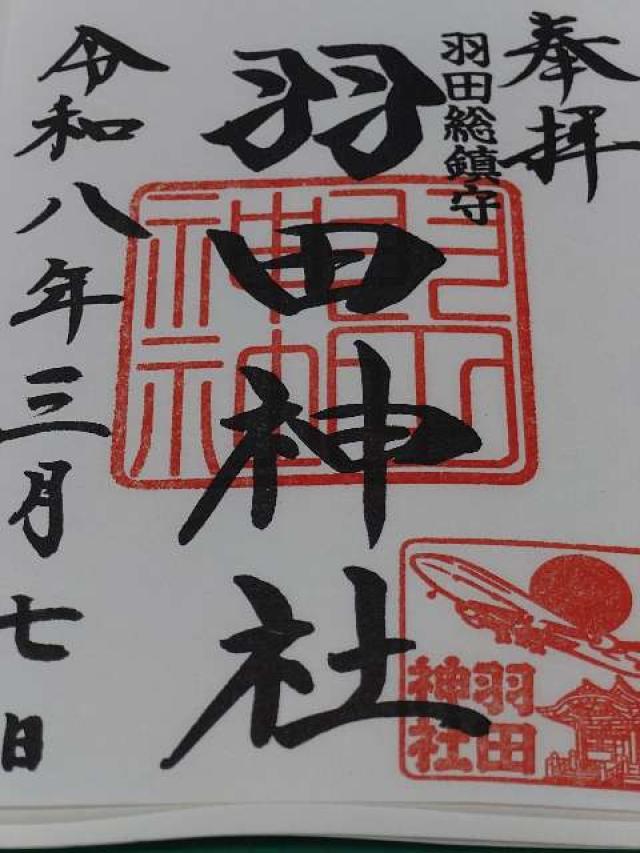 奉拝
羽田総鎮守
羽田神社
令和八年三月七日
羽田
神社